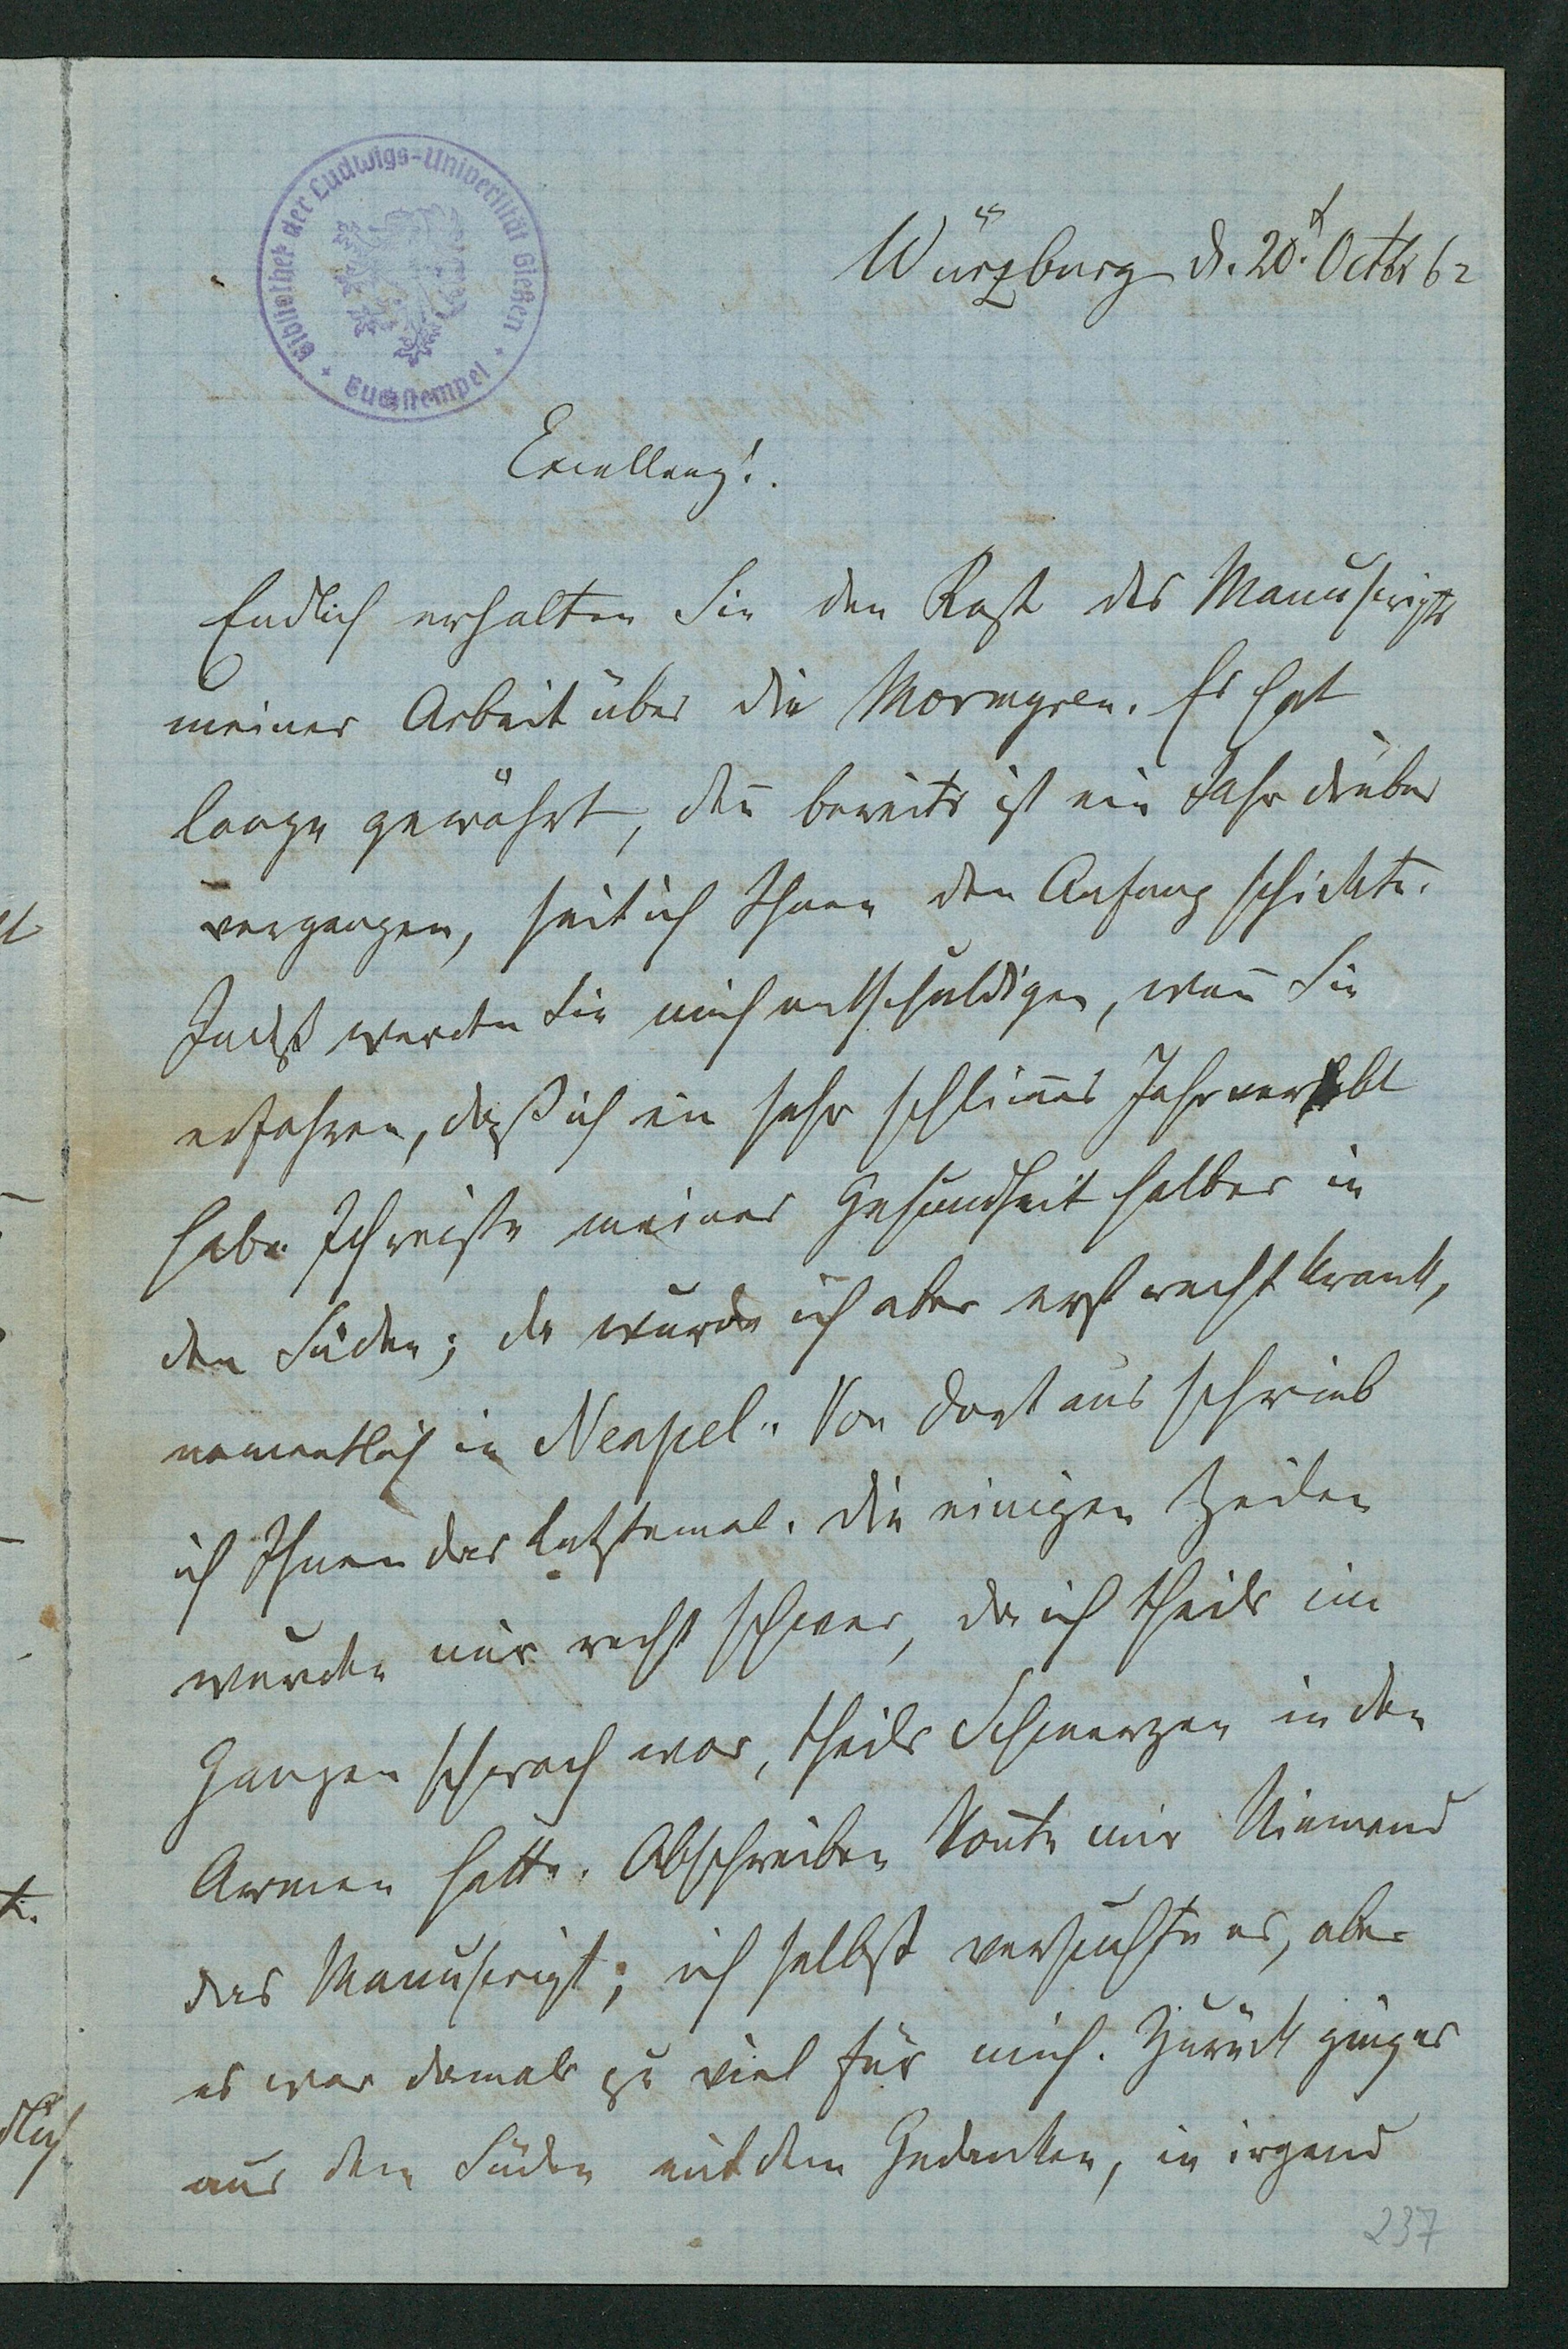 Bibliothek der Ludwigs-Universität Gießen
Buchstempel
Würzburg d. 20.t Octbr 62
Excellenz!
Endlich erhalten Sie den Rest des Manuscripts
meiner Arbeit über die Mormyren. Es hat
lange gewährt, den̄ bereits ist ein Jahr drüber
vergangen, seit ich Ihnen den Anfang schickte.
Indeß werden Sie mich entschuldigen, wen̄ Sie
erfahren, daß ich ein sehr schlim̄es Jahr verlebt
habe. Ich reiste meiner Gesundheit halber in
den Süden; da wurde ich aber erst recht krank,
namentlich in Neapel. Von dort aus schrieb
ich Ihnen das Letztemal. Die einigen Zeilen
wurden mir recht schwer, da ich theils im
Ganzen schwach war, theils Schmerzen in den
Armen hatte. Abschreiben kon̄te mir Niemand
das Manuscript; ich selbst versuchte es, aber
es war damals zu viel für mich. Zurück ging es
aus dem Süden mit dem Gedanken, in irgend
237
dlich
t.